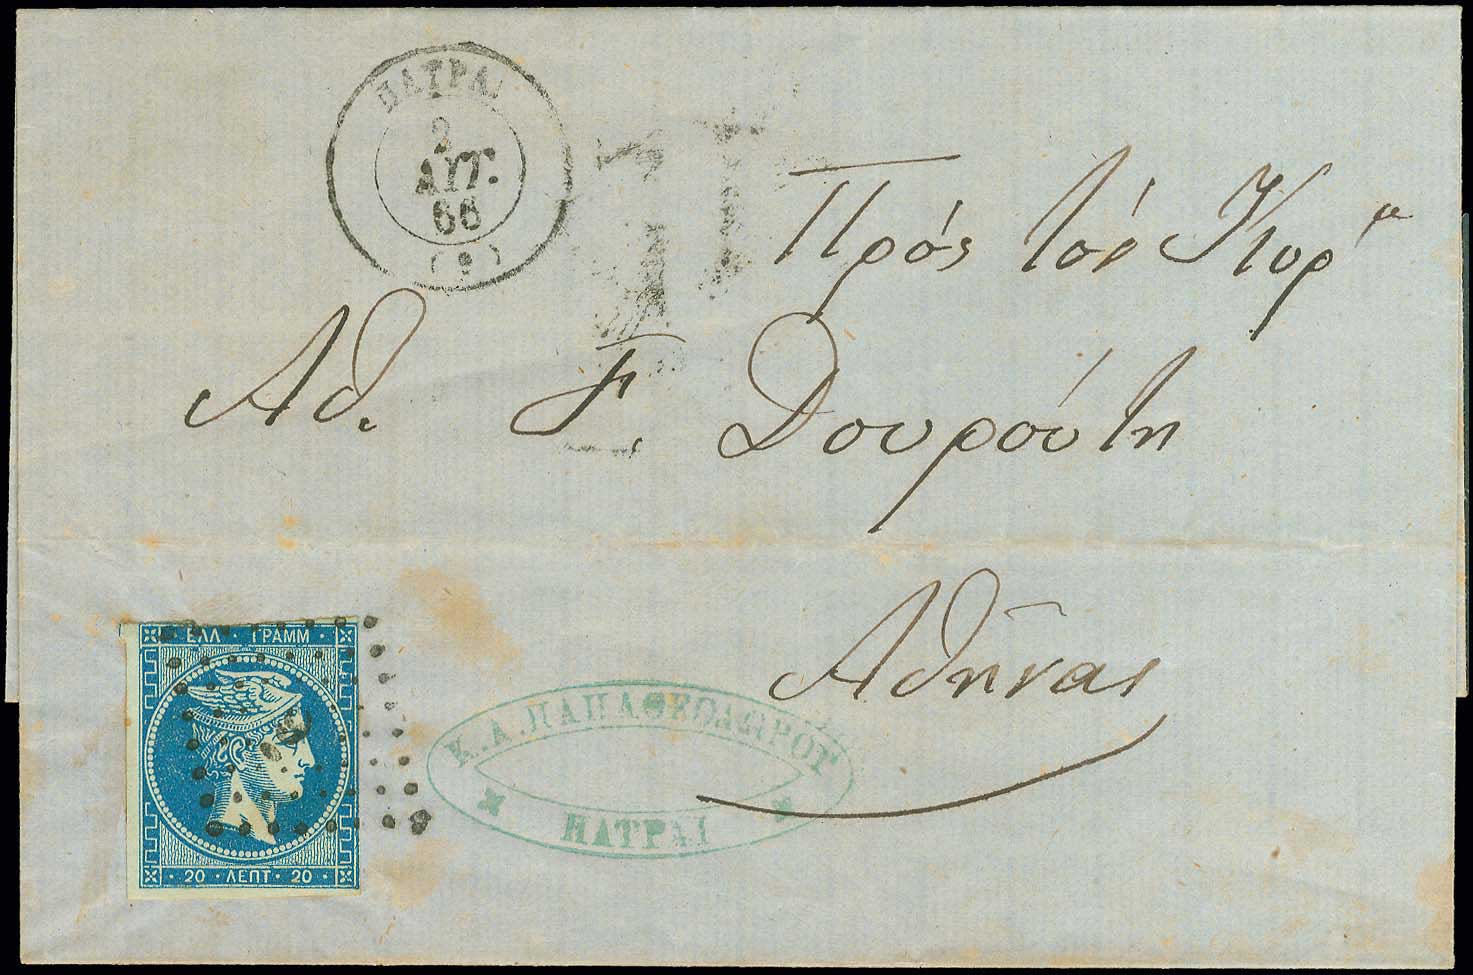 ΠΑΤΡΑΙ
2
ΑΥΓ.
66
(9)
Πρὸς τὸν Κύρ^ν
Αθ. Γ. Δουρούτη
Ἀθήνας
ΕΛΛ · ΓΡΑΜΜ
20 · ΛΕΠΤ · 20
Κ. Α. ΠΑΠΑΘΕΟΔΩΡΟΥ
ΠΑΤΡΑΙ